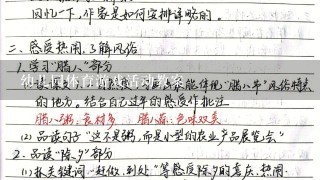 回忆一下，作家是如何安排详略的。
二、感受热闹，了解风俗
1.学习“腊八”部分
幼儿园体育游戏活动教案
体现“腊八节”风俗特点
的地方。结合自己过年的感受作批注
腊八粥：食材多 腊八蒜：色味双美
(2) 品读句子“这不是粥，而是小型的农业产品展览会”
2.品读“除夕”部分
“赶做，到处”等感受除夕的喜庆、热闹